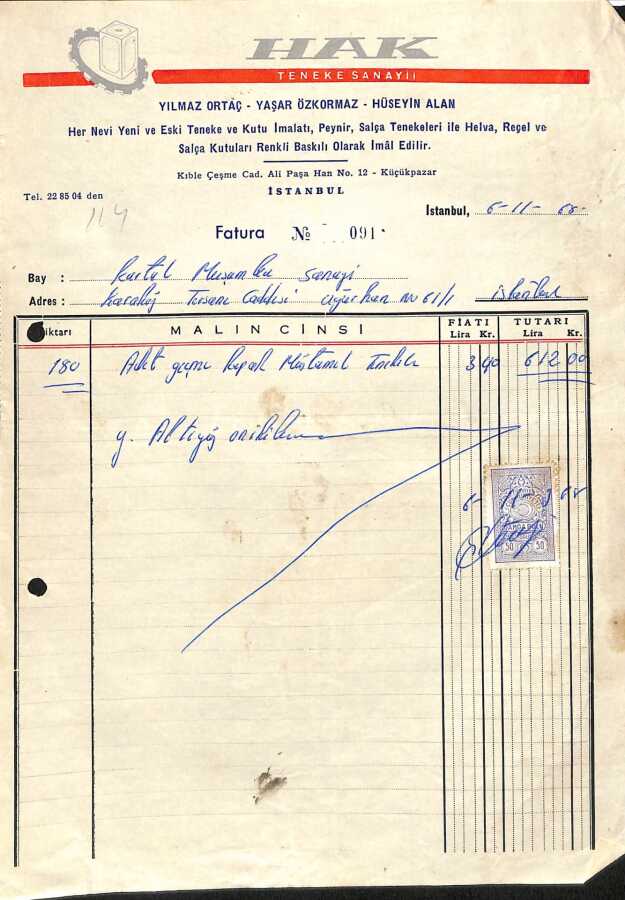 HAK
TENEKE SANAYİİ
YILMAZ ORTAÇ - YAŞAR ÖZKORMAZ - HÜSEYİN ALAN
Her Nevi Yeni ve Eski Teneke ve Kutu İmalatı, Peynir, Salça Tenekeleri ile Helva, Reçel ve
Salça Kutuları Renkli Baskılı Olarak İmâl Edilir.
Kıble Çeşme Cad. Ali Paşa Han No. 12 - Küçükpazar
İSTANBUL
Tel. 22 85 04 den
114
İstanbul, 6-11-68
Fatura № 091
Bay : Kartal Muşamba Sanayi
Adres : Karaköy Tersane Caddesi No 61/1 istanbul
Miktarı MALIN CİNSİ FİATI TUTARI
Lira Kr. Lira Kr.
180 Adet Kapak Müstamel Teneke 3 40 612 00
y. Altıyüz onikilira
6-11-968
50 50